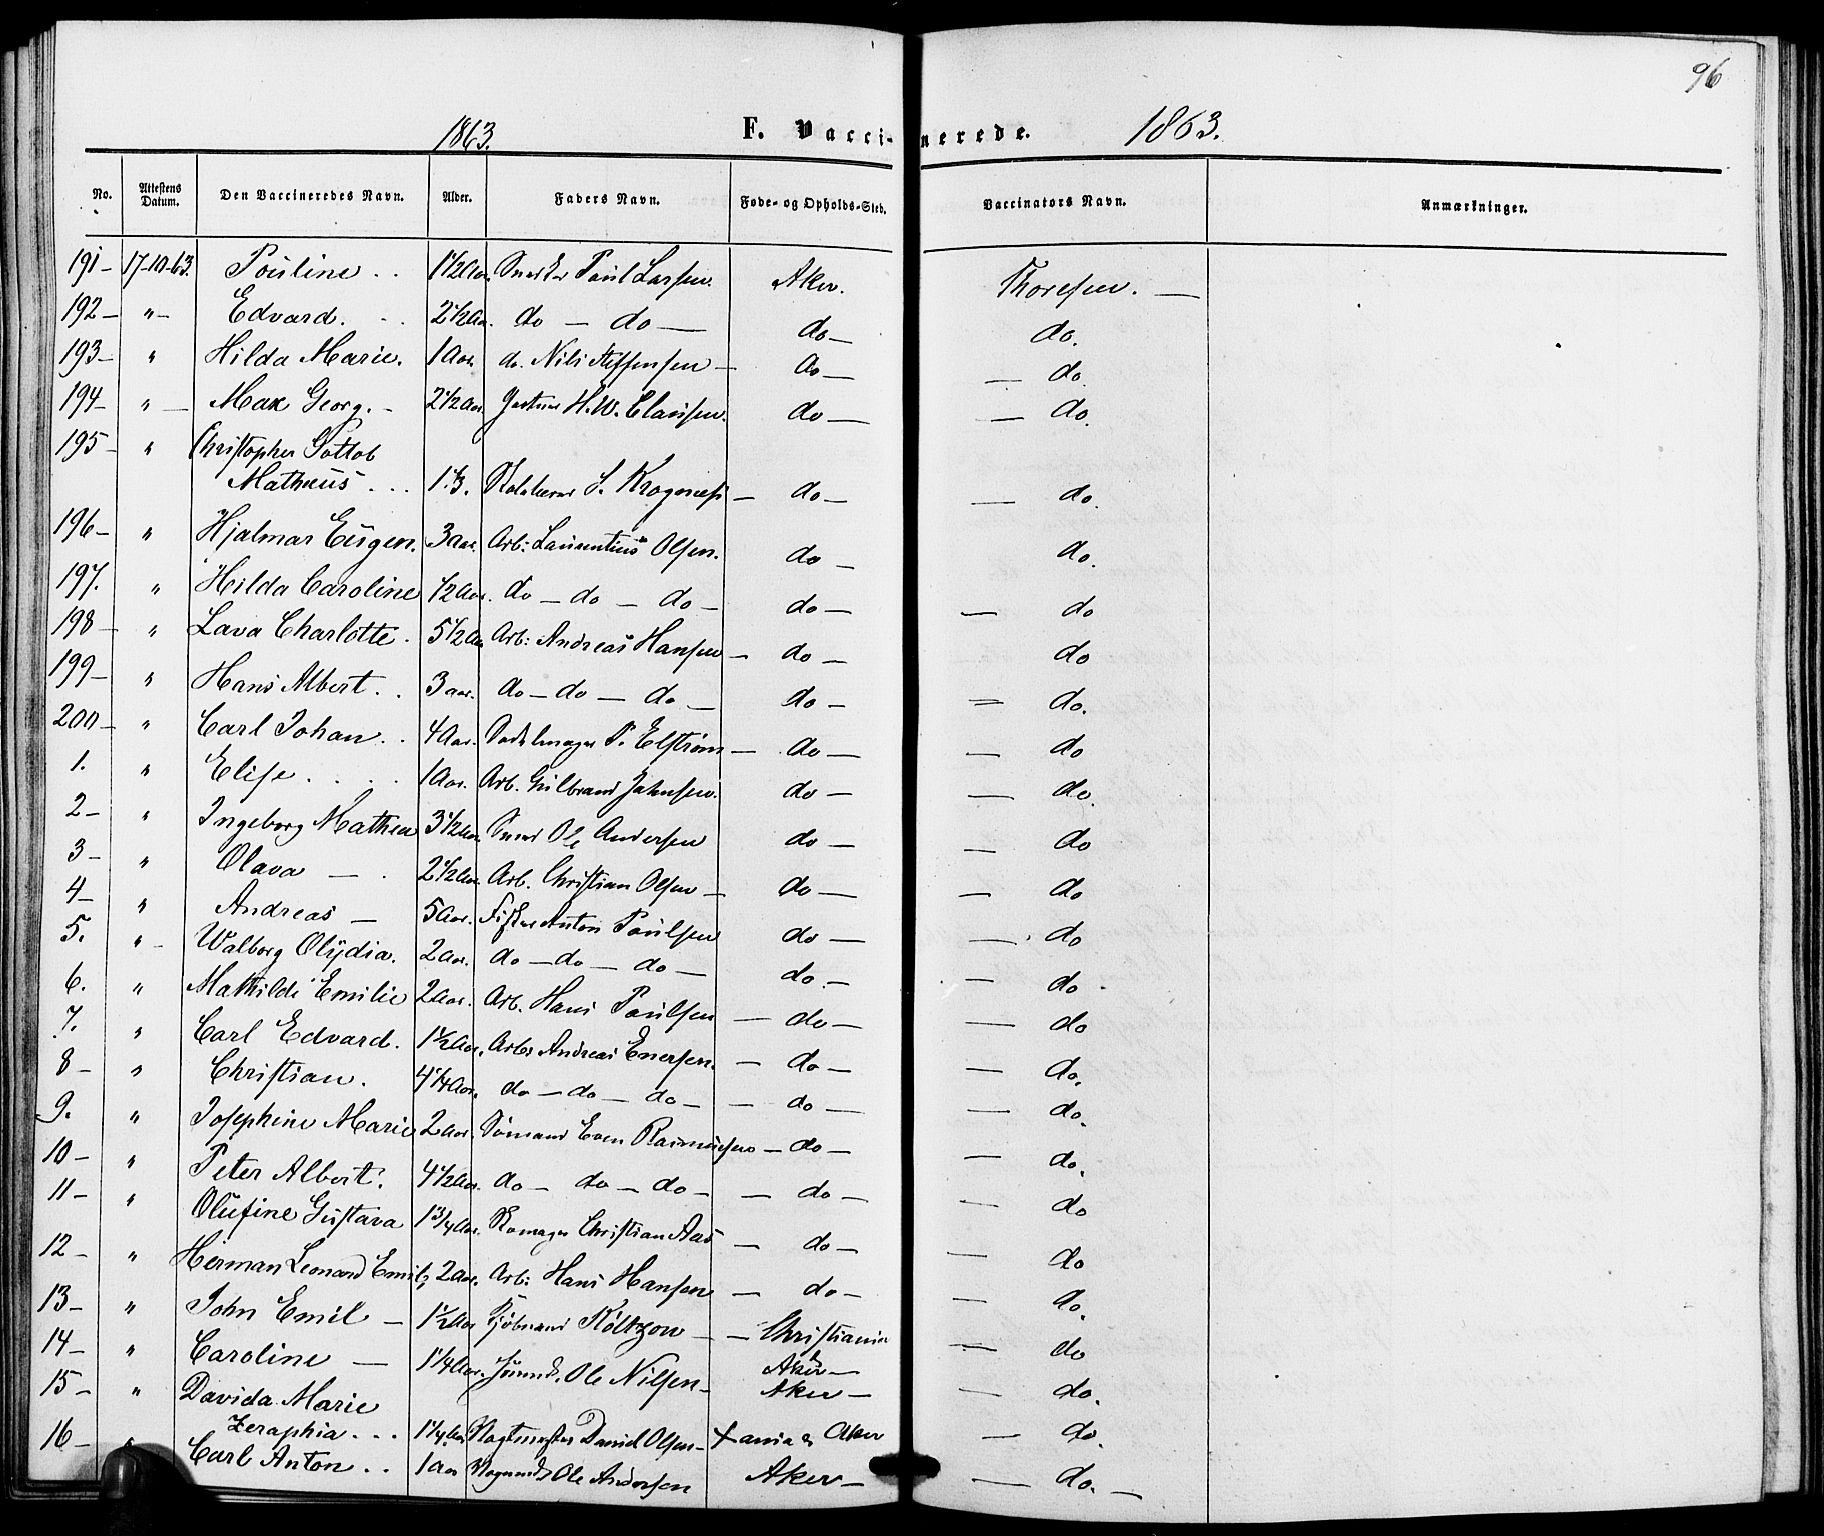 96
1863. F. Vaccinerede. 1863.
No. Attestens Datum. Den Vaccineredes Navn. Alder. Faders Navn. Føde- og Opholds-Sted. Vaccinators Navn. Anmærkninger.
191- 17-10-63. Pouline . . 1 1/2 Aar. Paul Larsen. Aker. Thoresen. —
192- "- Edvard. - . 2 1/2 Aar. do — do — do — do.
193- " Hilda Marie. 1 Aar. do. Nils Steffensen — do — — do.
194- " — Max Georg. - 2 1/2 Aar. H. W. Clausen. do — — do.
195- " Christopher Gottob
Mathæus . . . 1 1/3. S. Krogness — do — — do.
196- " Hjalmar Eugen. 3 Aar. Arb: Laurentius Olsen. do — do.
197. " Hilda Caroline 1/2 Aar. do — do — do — do — — do
198- " Lava Charlotte. 5 1/2 Aar Arb: Andreas Hansen — do — do
199- " Hans Albert . . 3 aar. do — do — do — do — — do.
200- " Carl Johan . . 4 Aar. Sadelmager P. Elstrøm — do — — do
1. " Elise . . . . 1 Aar. Arb. Gulbrand Johnsen. do — — do.
2- " Ingeborg Mathea 3 1/2 Aar. Ole Andersen do — — do
3- " Olava — . 2 1/2 Aar. Arb. Christian Olsen — do — — do
4- " Andreas — 5 Aar. Fisker Anton Paulsen do — — do
5. "- Walborg Olydia. 2 Aar. do — do — do — do. — — do
6. " Mathilde Emilie 2 Aar. Arb. Hans Paulsen — do — — do
7. " Carl Edvard. 1 1/2 Aar. Arb: Andreas Enersen. — do — — do.
8- " Christian. 4 1/4 Aar. do — do — do — — do — — do.
9. " Josephine Marie 2 Aar. Sømand Even Rasmussen — do — — do.
10- " Peter Albert. 4 1/2 Aar. do — do — do — — do — — do
11- " Olufine Gustava 1 3/4 Aar. Skomager Christian Aas — do — — do
12- " Herman Leonard Emil, 2 Aar. Arb: Hans Hansen — do — — do.
13- " John Emil — 1 1/2 Aar Kjøbmand Költzow — — Christiania — do
14- " Caroline — 1 1/4 Aar. Ole Nilsen — Aker —
15- " Davida Marie Aker — — do.
Zeraphia . . . 1 1/4 Aar Daniel Olsen — Xania & Aker — do.
16- " Carl Anton . . 1 Aar Ole Andersen Aker — — do. —